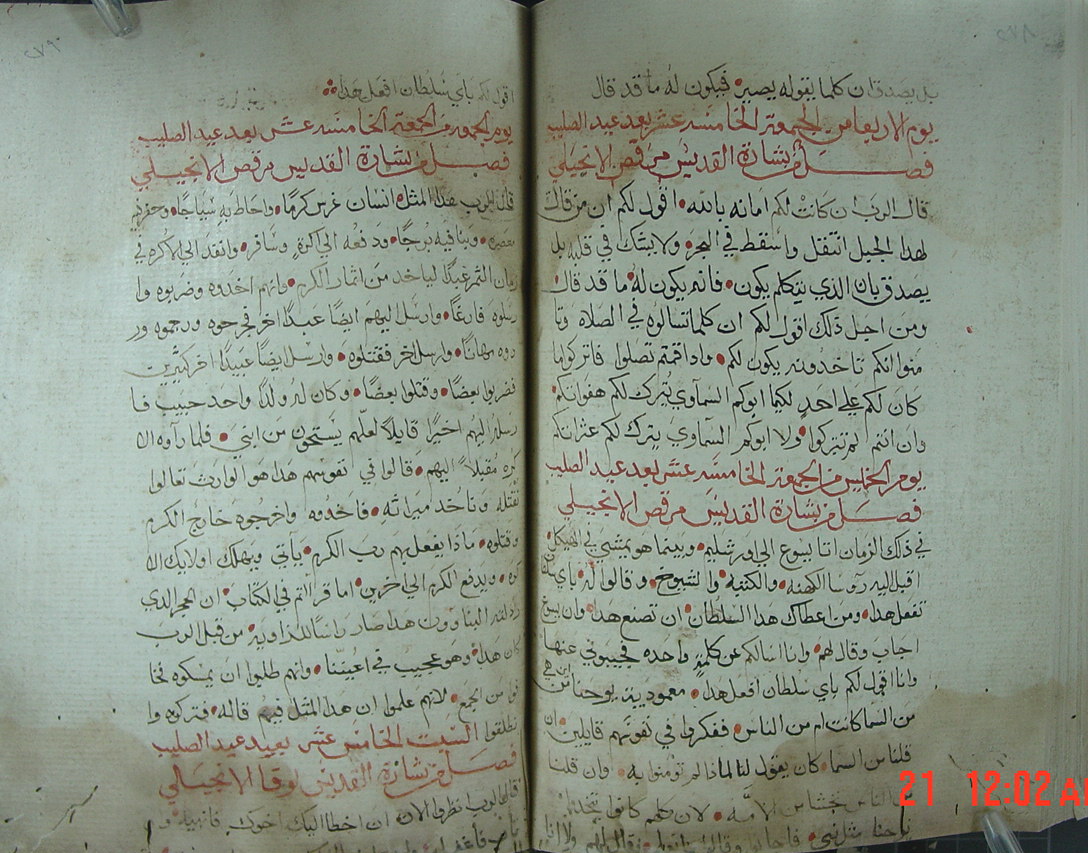 بل يصدق ان كلما يقوله يصير فيكون له ما قد قال
يوم الاربعا من الجمعة الخامسه عشر بعد عيد الصليب
فصل من بشارة القديس مرقص الانجيلي
قال الرب ان كانت لكم امانه بالله اقول لكم ان من قال
لهدا الجبل انتقل واسقط في البحر ولا يشك في قلبه بل
يصدق بان الذي يتكلم يكون فانه يكون له ما قد قال
ومن اجل ذلك اقول لكم ان كلما تسالوه في الصلاه وتا
منوا انكم تاخدونه يكون لكم وادا قمتم تصلوا فاتركوا ما
كان لكم علي احد لكيما ابوكم السماوي يترك لكم هفواتكم
وان انتم لم تتركوا ولا ابوكم السماوي يترك لكم عثراتكم
يوم الخميس من الجمعة الخامسه عشر بعد عيد الصليب
فصل من بشارة القديس مرقص الانجيلي
في ذلك الزمان اتا يسوع الي اورشليم وبينما هو يمشي في الهيكل
اقبل اليه روسا الكهنه والكتبه والشيوخ وقالوا له باي
تفعل هدا ومن اعطاك هدا السلطان ان تصنع هدا وان يسوع
اجاب وقال لهم وانا اسالكم عن كلمة واحده فجيبوني عنها
وانا اقول لكم باي سلطان افعل هدا معمودية يوحنا
من السما كانت ام من الناس ففكروا في نفوسهم قايلين ان
قلنا من السما كان يقول لنا لماذا لم تؤمنوا به وان قلنا
من الناس نخشا من الامه لان كلهم كانوا
يوحنا مثل نبي فاجابوا وقالوا فقال لهم ولا انا
اقول لكم باي سلطان افعل هدا
يوم الجمعه من الجمعة الخامسه عشر بعد عيد الصليب
فصل من بشارة القديس مرقص الانجيلي
قال الرب هدا المثل انسان غرس كرما واحاط به سياجا وحفر فيه
معصره وبنا فيه برجا ودفعه الي اكرة وسافر وانفد الي الاكره في
زمان الثمر عبدا لياخد من اثمار الكرم وانهم اخدوه وضربوه وا
رسلوه فارغا وارسل اليهم ايضا عبدا اخر فجرحوه ورجموه ور
دوه مهانا وارسل اخر فقتلوه وارسل ايضا عبيدا اخر كثيرين
فضربوا بعضا وقتلوا بعضا وكان له ولدا واحد حبيب فا
رسله اليهم اخيرا قايلا لعلهم يستحون من ابني فلما رآوه الا
كره مقبلا اليهم قالوا في نفوسهم هدا هو الوارث تعالوا
نقتله وناخد ميراثه فاخدوه واخرجوه خارج الكرم
وقتلوه ماذا يفعل بهم رب الكرم ياتي ويهلك اولايك الا
كره ويدفع الكرم الي اخرين اما قراتم في الكتاب ان الحجر الدي
رذلته البناوون هدا صار راسا للزاويه من قبل الرب
كان هدا وهو عجيب في اعيننا وانهم طلبوا ان يمسكوه فخا
فوا من الجمع لانهم علموا ان هدا المثل فيهم قاله فتركوه وا
نطلقوا السبت الخامس عشر بعد عيد الصليب
فصل من بشارة القديس لوقا الانجيلي
قال الرب انظروا الان ان اخطا اليك اخوك
21 12:02 A